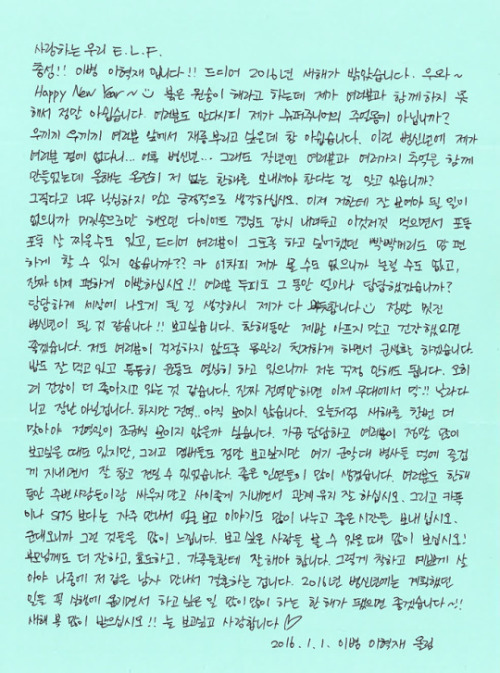 사랑하는 우리 E.L.F.
충성!! 이병 이혁재 입니다!! 드디어 2016년 새해가 밝았습니다. 우와~
Happy New Year~ 붉은 원숭이 해라고 하는데 제가 여러분과 함께 하지 못
해서 정말 아쉽습니다. 여러분도 알다시피 제가 슈퍼주니어의 주멍몽키 아닙니까?
우끼끼 우끼끼 여러분 앞에서 재롱부리고 싶은데 참 아쉽습니다. 이런 병신년에 제가
여러분 곁에 없다니... 이런 병신년... 그래도 작년엔 여러분과 여러가지 추억을 함께
만들었는데 올해는 온전히 저 없는 한해를 보내셔야 한다는 걸 알고 있습니까?
그렇다고 너무 낙심하지 말고 긍정적으로 생각하십시오. 이제 저한테 잘 보여야 될 일이
없으니까 머릿속으로만 해오던 다이어트 걱정도 잠시 내려두고 이것저것 먹으면서 포동
포동 살 찌울수도 있고, 드디어 여러분이 그토록 하고 싶어했던 빡빡머리도 맘 편
하게 할 수 있지 않습니까?? 캬 어차피 제가 볼 수도 없으니까 놀릴 수도 없고,
진짜 이제 편하게 이발하십시오!! 여러분 두피도 그 동안 얼마나 답답했겠습니까?
당당하게 세상에 나오게 될 걸 생각하니 제가 다 뿌듯합니다 정말 멋진
병신년이 될 것 같습니다!! 보고싶습니다. 한해동안 제발 아프지 말고 건강했으면
좋겠습니다. 저도 여러분이 걱정하지 않도록 몸관리 철저하게 하면서 군생활 하겠습니다.
밥도 잘 먹고 있고 틈틈히 운동도 열심히 하고 있으니까 저는 걱정 안해도 됩니다. 오히
려 건강이 더 좋아지고 있는 것 같습니다. 진짜 전역만 하면 이제 무대에서 막!! 날라다
니고 장난 아닐겁니다. 하지만 전역.. 아직 보이지 않습니다. 오늘처럼 새해를 한번 더
맞아야 전역일이 조금씩 보이지 않을까 싶습니다. 가끔 답답하고 여러분이 정말 많이
보고싶을 때도 있지만, 그리고 멤버들도 정말 보고싶지만 여기 군악대 병사들 덕에 즐겁
게 지내면서 잘 참고 견딜 수 있었습니다. 좋은 인연들이 많이 생겼습니다. 여러분도 한해
동안 주변사람들이랑 싸우지 말고 사이좋게 지내면서 관계 유지 잘 하십시오. 그리고 카톡
이나 SNS 보다는 자주 만나서 얼굴 보고 이야기도 많이 나누고 좋은 시간들 보내십시오.
군대오니까 그런 것들을 많이 느낍니다. 보고 싶은 사람들 볼 수 있을 때 많이 보십시오!
부모님께도 더 잘하고, 효도하고. 가족들한테 잘 해야 합니다. 그렇게 착하고 예쁘게 살
아야 나중에 저 같은 남자 만나서 결혼하는 겁니다. 2016년 병신년에는 계획했던
일들 꼭 실행에 옮기면서 하고 싶은 일 많이 많이 하는 한 해가 됐으면 좋겠습니다~!!
새해 복 많이 받으십시오!! 늘 보고싶고 사랑합니다♡
2016.1.1. 이병 이혁재 올림